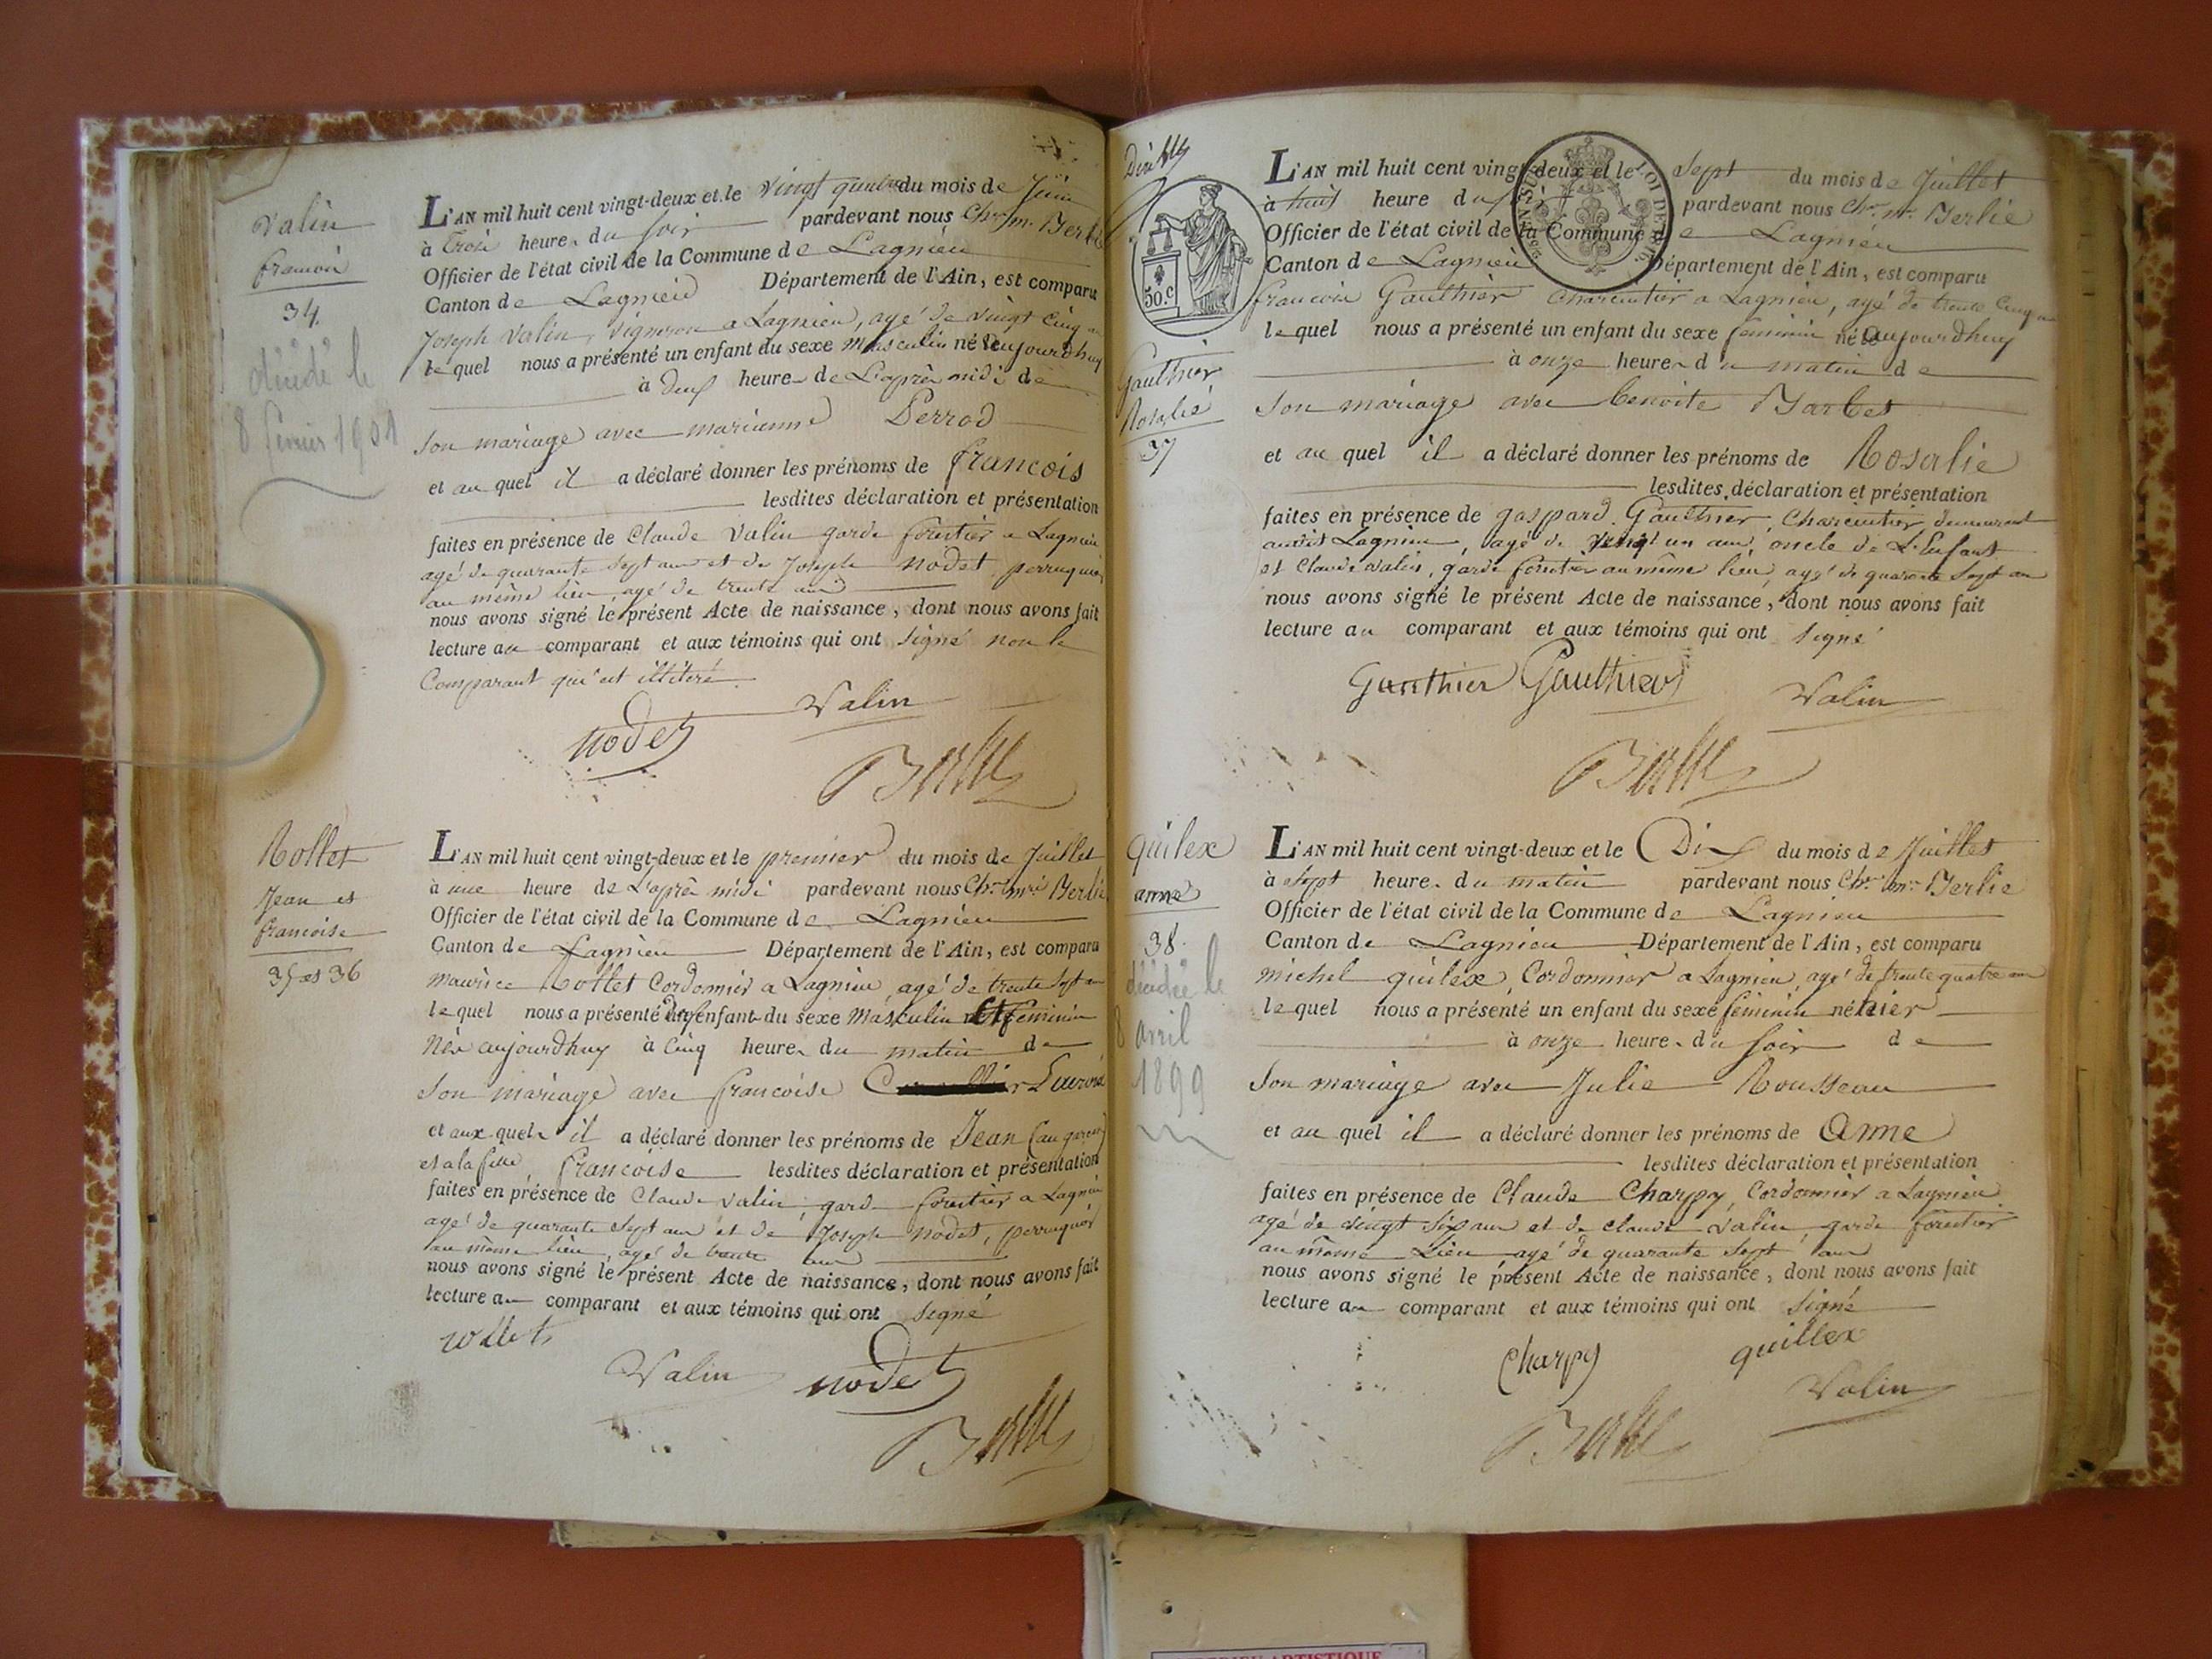 Valin
francois
34.
décédé le
8 février 1901
L'AN mil huit cent vingt-deux et le vingt quatre du mois de Juin
à trois heures du soir pardevant nous Chr. m. Berlie
Officier de l'état civil de la Commune de Lagnieu
Canton de Lagnieu Département de l'Ain, est comparu
Joseph Valin, Vigneron a Lagnieu, agé de vingt cinq ans
lequel nous a présenté un enfant du sexe masculin né aujourdhuy
à deux heures de L'après midi de
Son mariage avec marianne Perrod
et au quel il a déclaré donner les prénoms de francois
lesdites déclaration et présentation
faites en présence de Claude Valin garde forestier a Lagnieu
agé de quarante sept ans et de Joseph nodet perruquier
au même lieu, agé de trente ans
nous avons signé le présent Acte de naissance, dont nous avons fait
lecture au comparant et aux témoins qui ont signé non le
Comparant qui est illitéré.
Valin
nodet
Berlie
Rollet
Jean et
francoise
35 et 36
L'AN mil huit cent vingt-deux et le premier du mois de Juillet
à une heure de L'après midi pardevant nous Chr. m. Berlie
Officier de l'état civil de la Commune de Lagnieu
Canton de Lagnieu Département de l'Ain, est comparu
maurice Rollet Cordonnier a Lagnieu, agé de trente sept ans
lequel nous a présenté enfants du sexe masculin et feminin
Nés aujourdhuy à Cinq heures du matin de
Son mariage avec francoise
et aux quels il a déclaré donner les prénoms de Jean (au garcon)
et a la fille, francoise lesdites déclaration et présentation
faites en présence de Claude Valin garde forestier a Lagnieu
agé de quarante sept ans et de Joseph nodet, perruquier
au même lieu, agé de trente ans
nous avons signé le présent Acte de naissance, dont nous avons fait
lecture au comparant et aux témoins qui ont signé
rollet
Valin nodet
Berlie
50.c
LOI DE
L'AN mil huit cent vingt-deux et le Sept du mois de Juillet
à huit heure du pardevant nous Chr. m. Berlie
Officier de l'état civil de la Commune de Lagnieu
Canton de Lagnieu Département de l'Ain, est comparu
francois Gaulthier Charcutier a Lagnieu, agé de trente Cinq ans
lequel nous a présenté un enfant du sexe feminin né aujourdhuy
à onze heures du matin de
Son mariage avec benoite Barbet
Gaulthier
Rosalie
37
et au quel il a déclaré donner les prénoms de Rosalie
lesdites déclaration et présentation
faites en présence de gaspard Gaulthier, Charcutier, demeurant
audit Lagnieu, agé de vingt un ans, oncle de L'Enfant
et Claude valin, garde forestier au même lieu, agé de quarante sept ans
nous avons signé le présent Acte de naissance, dont nous avons fait
lecture au comparant et aux témoins qui ont signé
Gaulthier Gaulthier
Valin
Berlie
quilex
anne
38.
décédée le
8 avril
1899
L'AN mil huit cent vingt-deux et le Dix du mois de Juillet
à sept heures du matin pardevant nous Chr. m. Berlie
Officier de l'état civil de la Commune de Lagnieu
Canton de Lagnieu Département de l'Ain, est comparu
michel quilex, Cordonnier a Lagnieu, agé de trente quatre ans
lequel nous a présenté un enfant du sexe féminin né hier
à onze heures du soir de
Son mariage avec Julie Rousseau
et au quel il a déclaré donner les prénoms de Anne
lesdites déclaration et présentation
faites en présence de Claude Charpy, Cordonnier a Lagnieu
agé de vingt six ans et de claude Valin, garde forestier
au même Lieu agé de quarante sept ans
nous avons signé le présent Acte de naissance, dont nous avons fait
lecture au comparant et aux témoins qui ont signé
Charpy quillex
Valin
Berlie
ARTISTIQUE